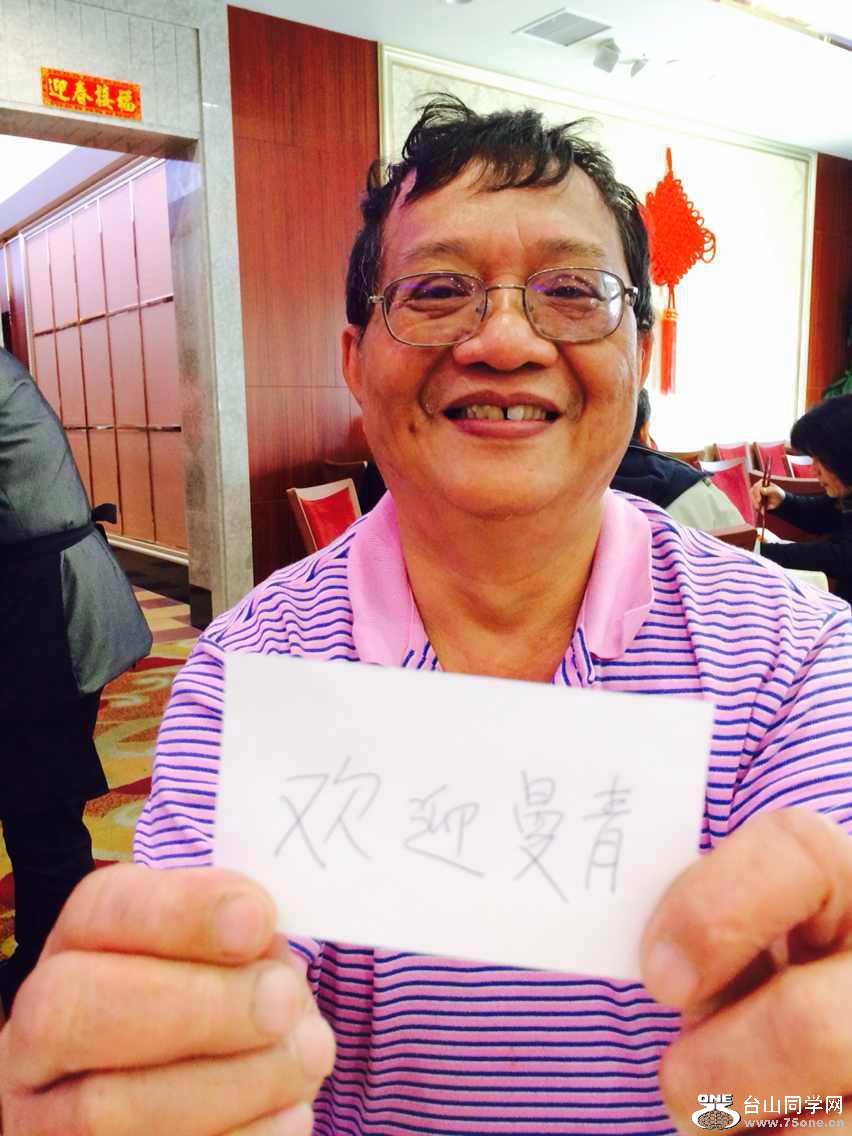 迎春接福
欢迎曼青
ONE 台山同学网
www.75one.cn